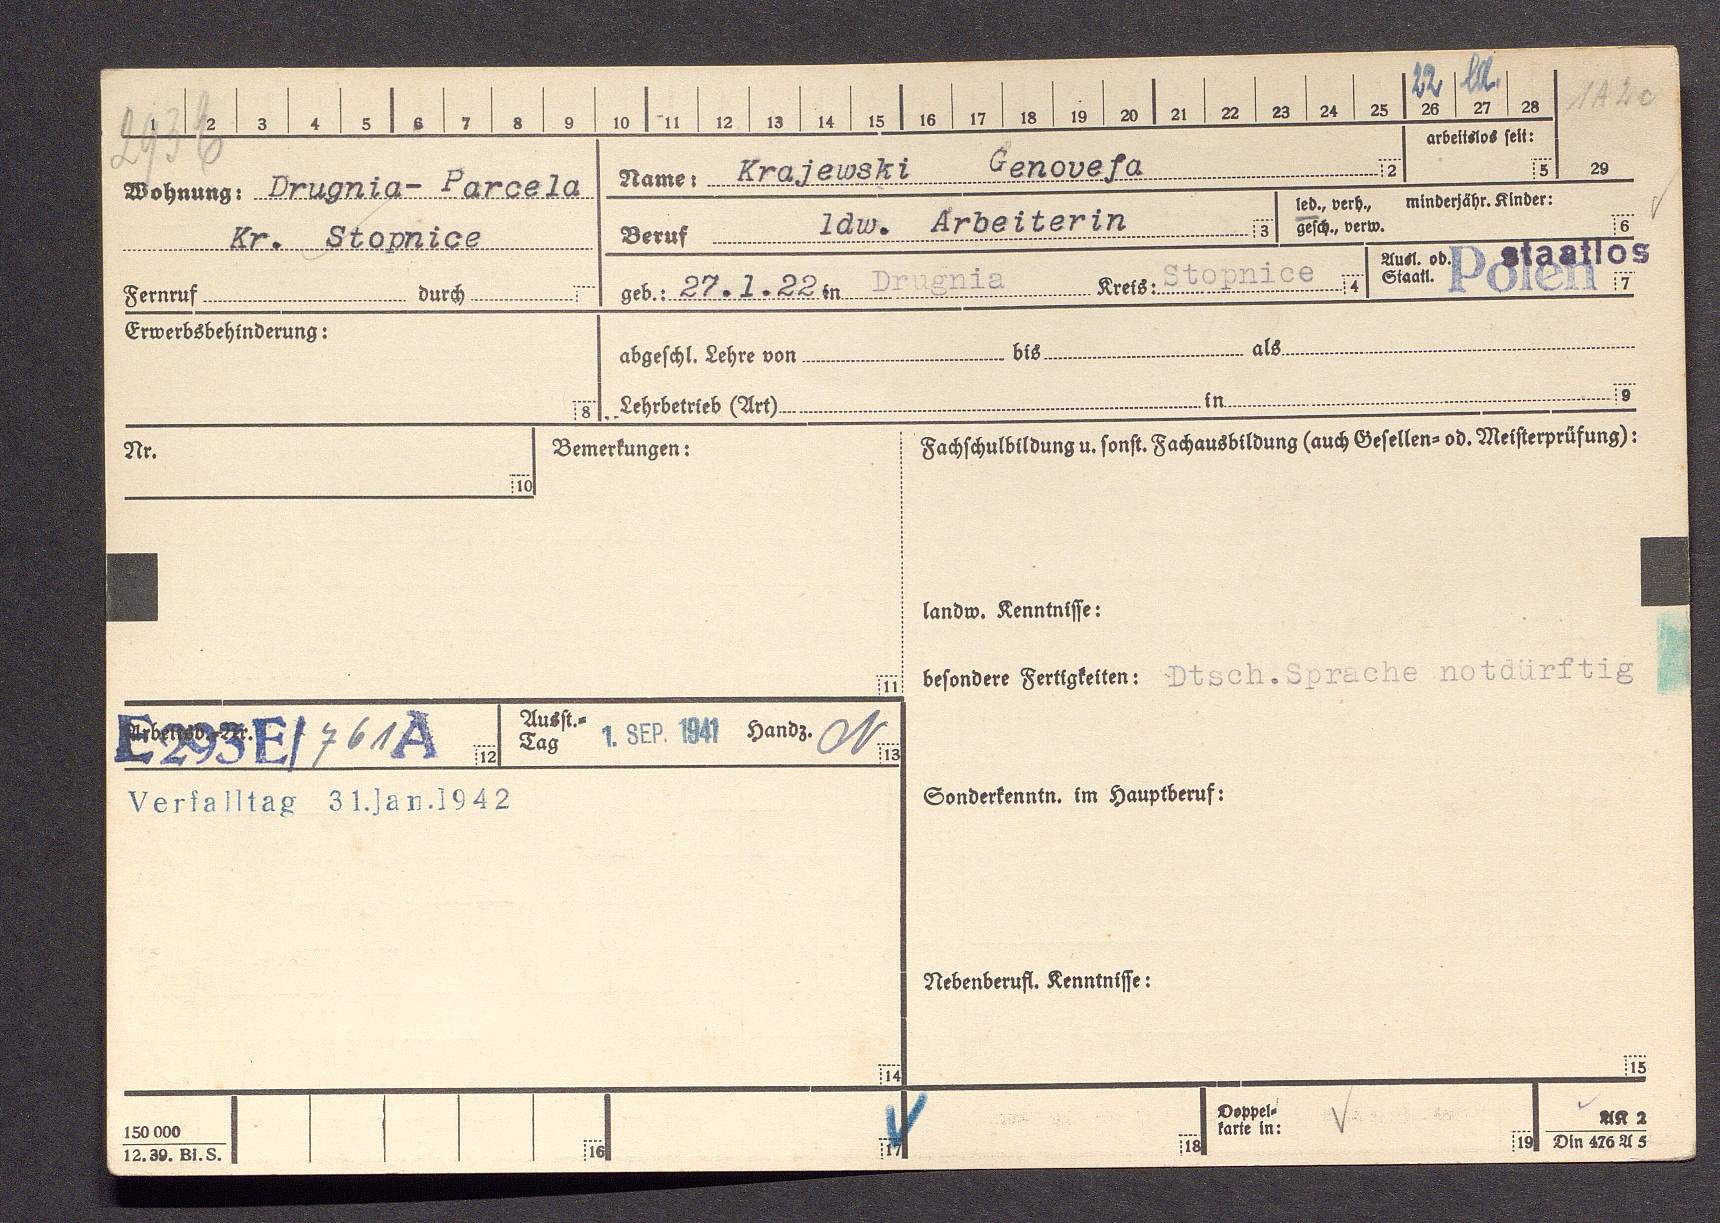 22 led.
1 2 3 4 5 6 7 8 9 10 11 12 13 14 15 16 17 18 19 20 21 22 23 24 25 26 27 28 29
1A2c
293E
Wohnung: Drugnia- Parcela
Kr. Stopnice
Fernruf durch
Name: Krajewski Genovefa 2
arbeitslos seit: 5
Beruf ldw. Arbeiterin 3
led., verh., gesch., verw. minderjähr. Kinder: 6
geb.: 27.1.22 in Drugnia Kreis: Stopnice 4
Ausl. od. Staatl. Polen staatlos 7
Erwerbsbehinderung: 8
abgeschl. Lehre von bis als
Lehrbetrieb (Art) in 9
Nr. 10
Bemerkungen: 11
Fachschulbildung u. sonst. Fachausbildung (auch Gesellen= od. Meisterprüfung):
landw. Kenntnisse:
besondere Fertigkeiten: Dtsch.Sprache notdürftig
Arbeitsb.-Nr. E 293E/761A 12
Ausst.= Tag 1. SEP. 1941 Handz. 13
Verfalltag 31.Jan.1942
14
Sonderkenntn. im Hauptberuf:
Nebenberufl. Kenntnisse:
15
150 000
12.39. Bl.S.
16 17 18
Doppel=
karte in: 19
AK 2
Din 476 A 5